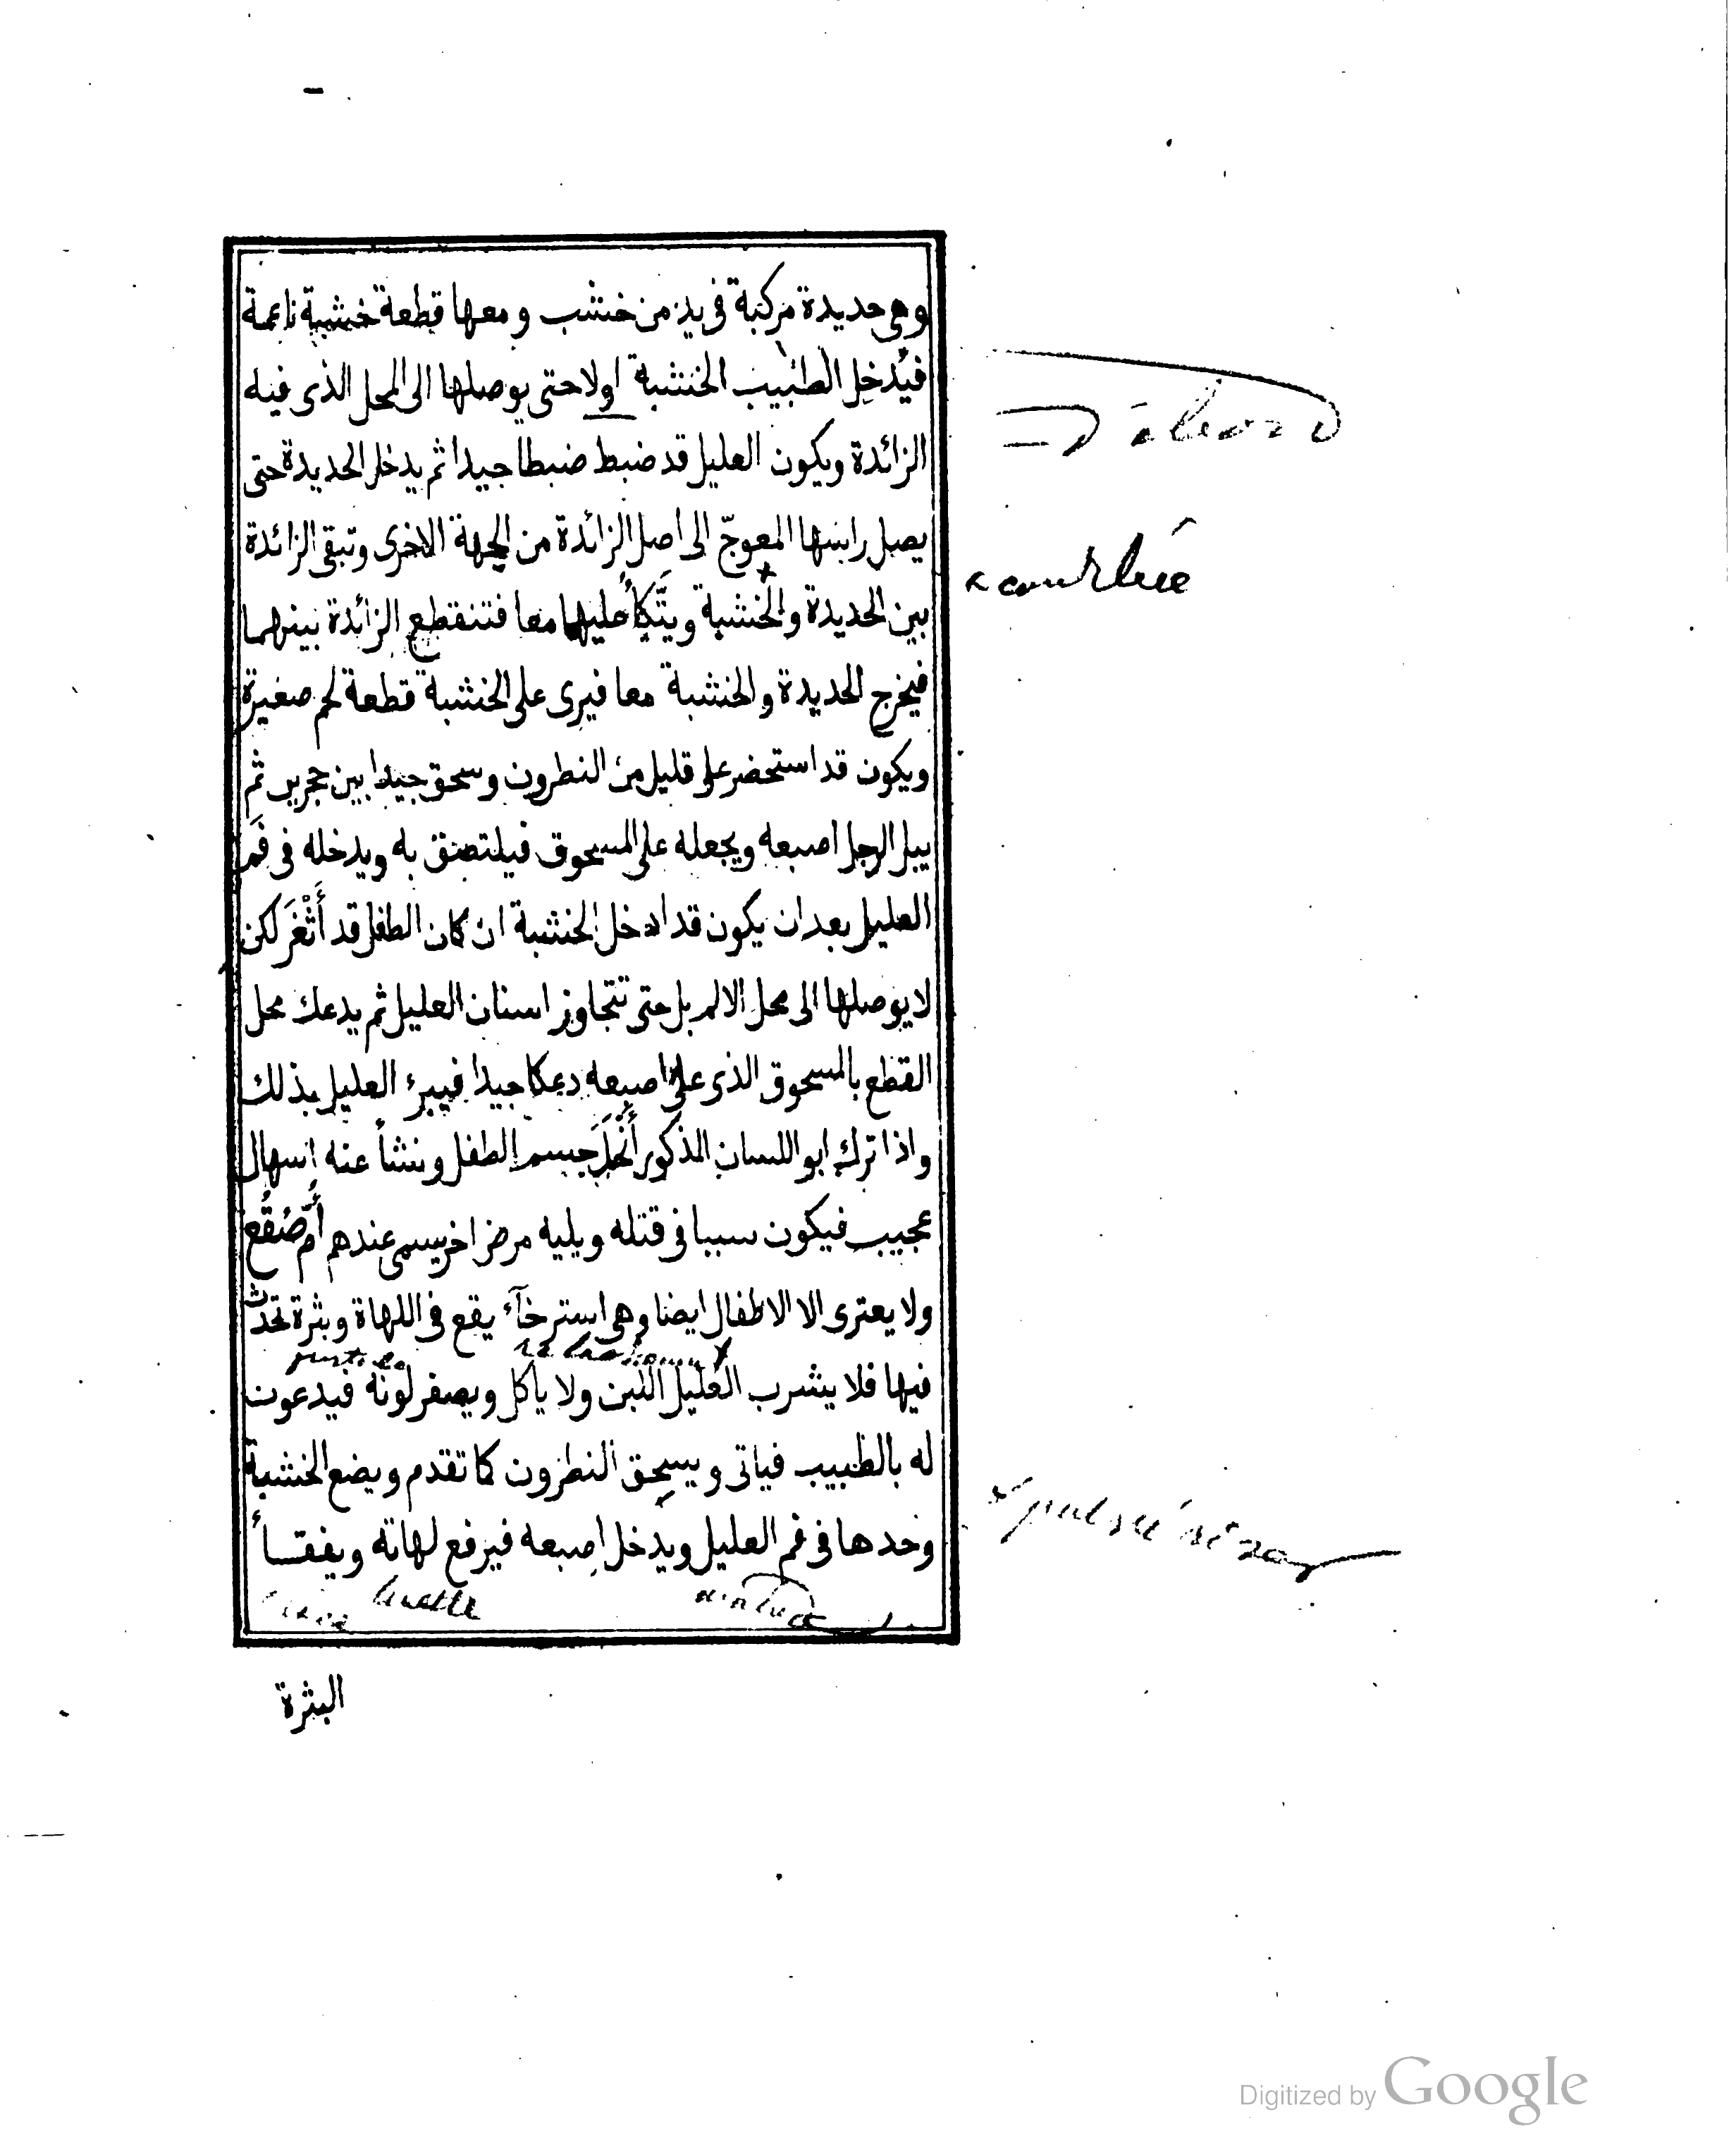 وهى حديدة مركبة فى يد من خشب ومعها قطعة خشبة ناعمة
فيُدخِل الطبيب الخشبة اولا حتى يوصلها الى المحل الذى فيه
الزائدة ويكون العليل قد ضبط ضبطا جيدا ثم يدخل الحديدة حتى
يصل راسها المعوجّ الى اصل الزائدة من الجهة الاخرى وتبقى الزائدة
بين الحديدة والخشبة ويتَّكأُ عليهما معا فتنقطع الزائدة بينهما
فيخرج الحديدة والخشبة معا فيرى على الخشبة قطعة لحم صغيرة
ويكون قد استحضر على قليل من النطرون وسحق جيدا بين حجرين ثم
يبل الرجل اصبعه ويجعله على المسحوق فيلتصق به ويدخله فى فَم
العليل بعد ان يكون قد ادخل الخشبة ان كان الطفل قد أَثْغَر لكن
لا يوصلها الى محل الالم بل حتى تتجاوز اسنان العليل ثم يدعك محل
القطع بالمسحوق الذى على اصبعه دعكا جيدا فيبرء العليل بذلك
واذا ترك ابو اللسان المذكور أَنْحَلَ جسم الطفل ونشأ عنه اسهال
عجيب فيكون سببا فى قتله ويليه مرض اخر يسمى عندهم أُمّ صُقُع
ولا يعترى الا الاطفال ايضا وهى استرخآء يقع فى اللهاة وبثرة تحدث
فيها فلا يشرب العليل اللبن ولا ياكل ويصفر لونه فيدعون
له بالطبيب فياتى ويسحق النطرون كما تقدم ويضع الخشبة
وحدها فى فم العليل ويدخل اصبعه فيرفع لهاته ويفقأ
luette
البثرة
x courbée
Digitized by Google